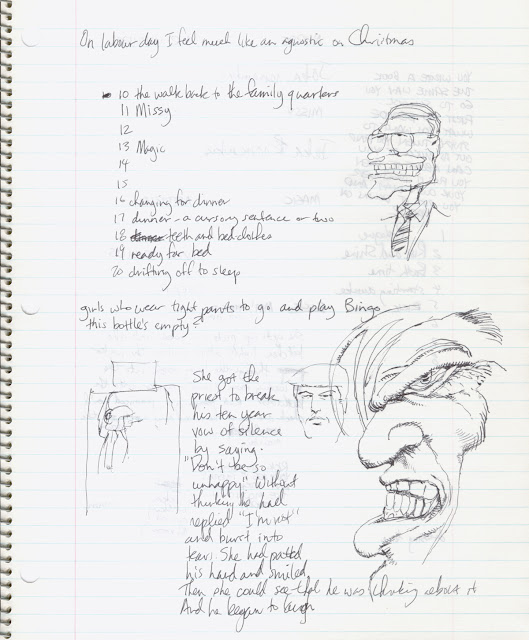 On labour day I feel much like an agnostic on Christmas
10 the walk back to the family quarters
11 Missy
12
13 Magic
14
15
16 changing for dinner
17 dinner - a cursory sentence or two
18 teeth and bedclothes
19 ready for bed
20 drifting off to sleep
girls who wear tight pants to go and play Bingo
this bottle's empty?
She got the
priest to break
his ten year
vow of silence
by saying.
"Don't be so
unhappy" Without
thinking he had
replied "I'm not"
and burst into
tears. She had patted
his hand and smiled.
Then she could see that he was thinking about it
And he began to laugh